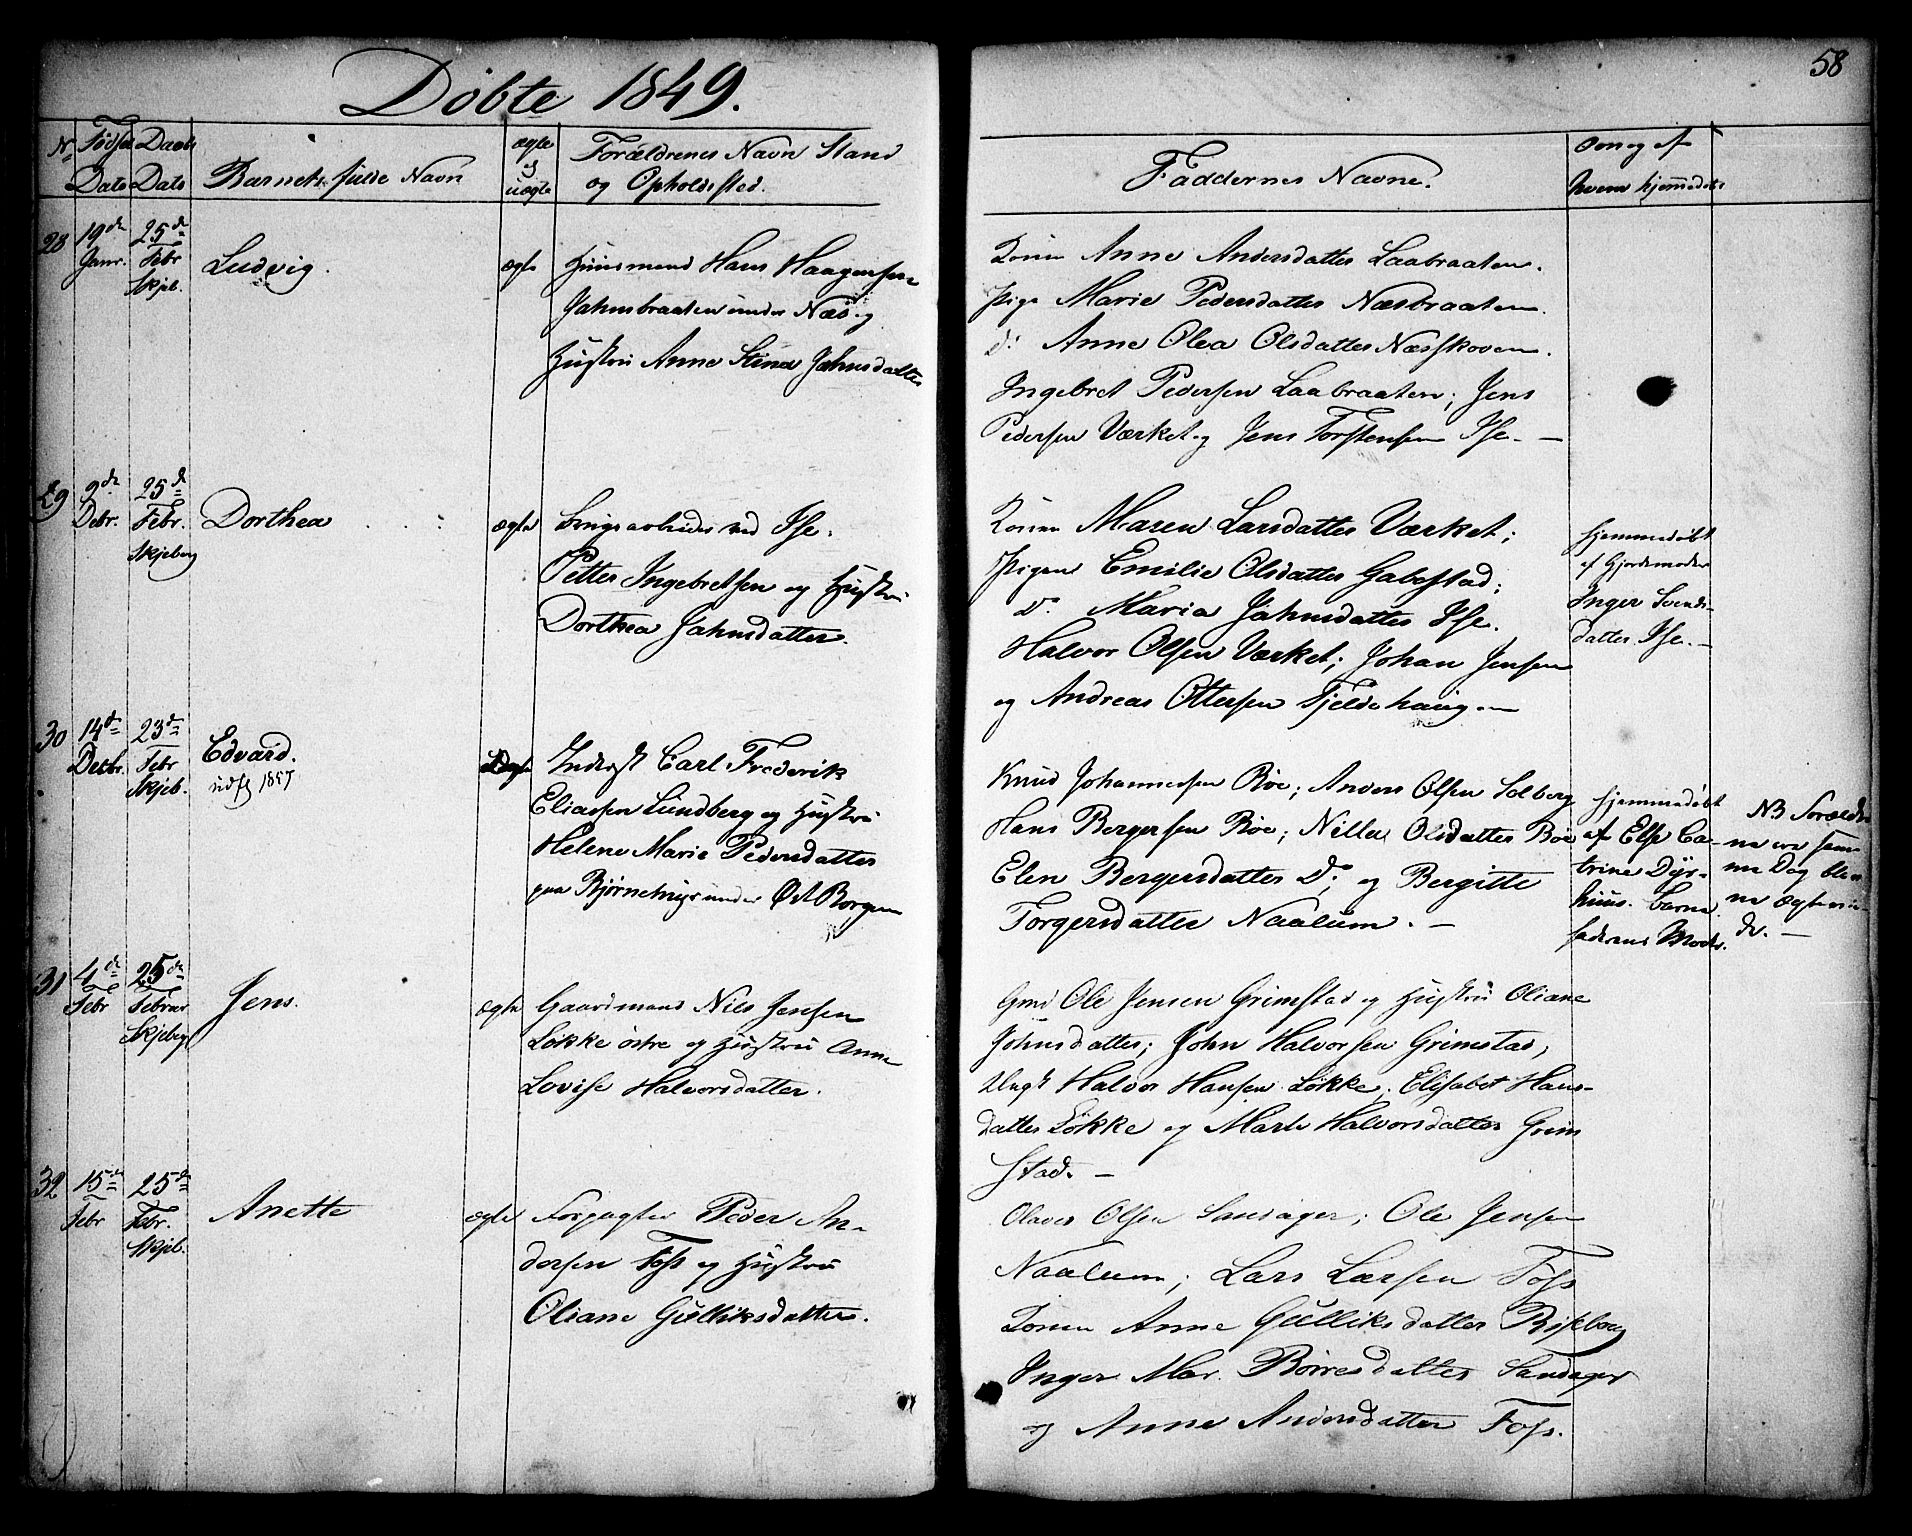 58
Døbte 1849.
No Fødsels Dato
Daabs Dato
Barnets fulde Navn
ægte
og
uægte
Forældrenes Navn Stand
og Opholdssted.
Faddernes Navne.
Om og af
hvem hjemmedøbt
28
19de
Janr.
25de
Febr
Skjeb.
Ludvig.
ægte
Huusmand Hans Haagensen
Jahnsbraaten under Næs og
Hustru Anne Stina Jahnsdatter
Konen Anne Andersdatter Laabraaten.
Pige Marie Pedersdatter Næsbraaten.
Do Anne Olea Olsdatter Næsskoven.
Ingebret Pedersen Laabraaten; Jens
Pedersen Værket og Jens Torstensen Ise. —
29
9de
Debr.
25de
Febr.
Skjeberg
Dorthea
ægte
Brugsarbeider ved Ise.
Petter Ingebretsen og Hustru
Dorthea Jahnsdatter.
Konen Maren Larsdatter Værket;
Pigen Emilie Olsdatter Gabestad;
Do. Maria Jahnsdatter Ise.
Halvor Olsen Værket; Johan Jensen
og Andreas Ottersen Fjeldshaug. —
Hjemmedøbt
af Gjordemoder
Inger Svends-
datter Ise. —
30
14de
Decbr.
23de
Febr
Skjeb.
Edvard.
udfl 1857
Inderst Carl Frederik
Eliassen Lundberg og Hustru
Helene Marie Pedersdatter
paa Bjørnemyr under Øst Borgen
Knud Johannessen Bøe; Anders Olsen Solberg
Hans Bergersen Bøe; Nilla Olsdatter Bøe
Elen Bergersdatter Do; og Bergitte
Torgersdatter Naalum. —
Hjemmedøbt
af Else Ca-
trine Dyr-
huus. Barne
faderens Moder.
NB Foræld-
ne ere sam-
me Dag blev-
ne Ægtevie-
de. —
31
4de
Febr
25de
Februar
Skjeberg
Jens.
ægte
Gaardmand Nils Jensen
Løkke østre og Hustru Anne
Lovise Halvorsdatter.
Gmd Ole Jensen Grimstad og Hustru Oliane
Johnsdatter; John Halvorsen Grimstad,
Ungk Halvor Hansen Løkke, Elisabet Hans-
datter Løkke og Marte Halvorsdatter Grim
stad. —
32
15de
Febr
25de
Febr.
Skjeb.
Anette
ægte
Forpagter Peder An-
dersen Foss og Hustru
Oliane Gulliksdatter.
Olaves Olsen Sandager; Ole Jensen
Naalum; Lars Larsen Foss
Konen Anne Gulliksdatter Ripsborg
Inger Mar. Børresdatter Sandager
og Anne Andersdatter Foss.